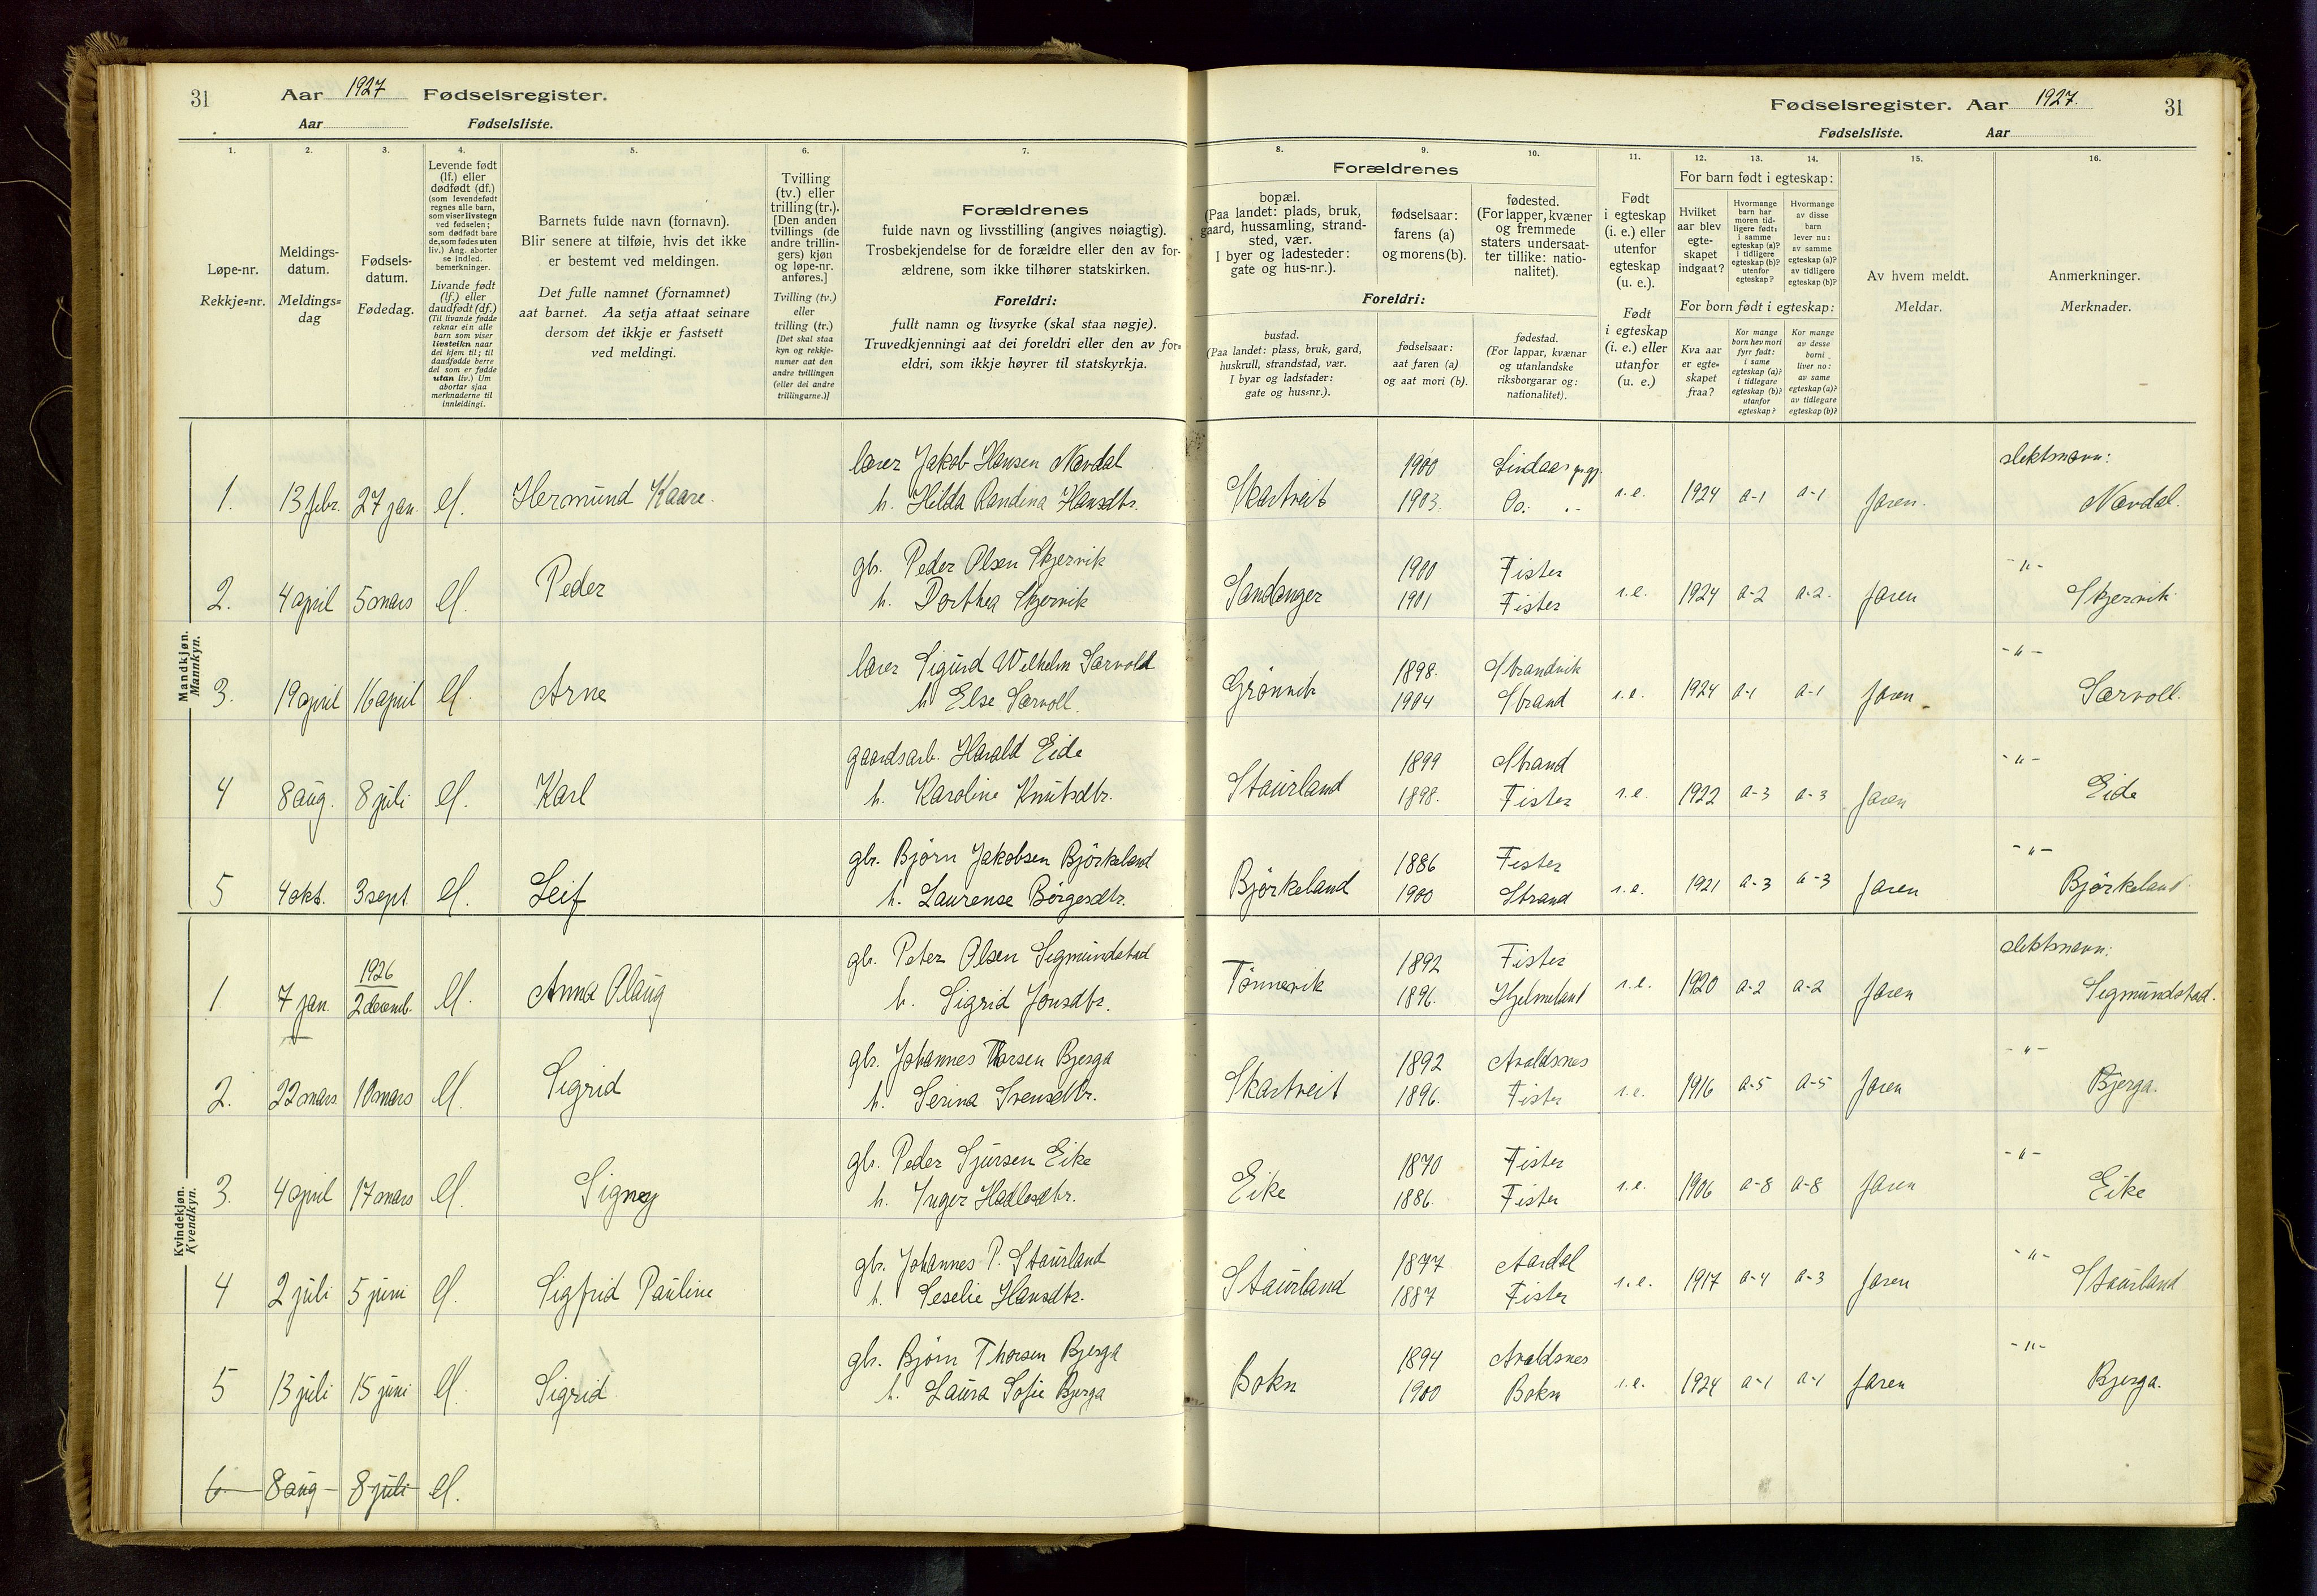 31 Aar 1927 Fødselsregister.
Aar Fødselsliste.
Fødselsregister. Aar 1927. 31
Fødselsliste. Aar
1. 2. 3. 4. 5. 6. 7. 8. 9. 10. 11. 12. 13. 14. 15. 16.
Løpe-nr.
Rekkje=nr.
Meldings-
datum.
Meldings=
dag
Fødsels-
datum.
Fødedag.
Levende født
(lf.) eller
dødfødt (df.)
(som levendefødt
regnes alle barn,
som viser livstegn
ved fødselen;
som dødfødt bare
de, som fødes uten
liv.) Ang. aborter
se indled.
bemerkninger.
Livande født
(lf.) eller
daudfødt (df.)
(Til livande fødde
reknar ein alle
barn som viser
livsteikn naar
dei kjem til; til
daudfødde berre
dei som er fødde
utan liv.) Um
abortar sjaa
merknaderne til
innleidingi.
Barnets fulde navn (fornavn).
Blir senere at tilføie, hvis det ikke
er bestemt ved meldingen.
Det fulle namnet (fornamnet)
aat barnet. Aa setja attaat seinare
dersom det ikkje er fastsett
ved meldingi.
Tvilling
(tv.) eller
trilling (tr.).
[Den anden
tvillings (de
andre trillin-
gers) kjøn
og løpe-nr.
anføres.]
Tvilling (tv.)
eller
trilling (tr.)
[Det skal staa
kyn og rekkje-
numer aat den
andre tvillingen
(eller dei andre
trillingarne.)]
Forældrenes
fulde navn og livsstilling (angives nøiagtig).
Trosbekjendelse for de forældre eller den av for-
ældrene, som ikke tilhører statskirken.
Foreldri:
fullt namn og livsyrke (skal staa nøgje).
Truvedkjenningi aat dei foreldri eller den av for=
eldri, som ikkje høyrer til statskyrkja.
Forældrenes
bopæl.
(Paa landet: plads, bruk,
gaard, hussamling, strand-
sted, vær.
I byer og ladesteder:
gate og hus-nr.).
fødselsaar:
farens (a)
og morens (b).
fødested.
(For lapper, kvæner
og fremmede
staters undersaat-
ter tillike: natio-
nalitet).
Foreldri:
bustad.
(Paa landet: plass, bruk, gard,
huskrull, strandstad, vær.
I byar og ladstader:
gate og hus=nr.).
fødselsaar:
aat faren (a)
og aat mori (b).
fødestad.
(For lappar, kvænar
og utanlandske
riksborgarar og:
nationalitet).
Født
i egteskap
(i. e.) eller
utenfor
egteskap
(u. e.).
Født
i egteskap
(i. e.) eller
utanfor
(u. e.)
For barn født i egteskap:
Hvilket
aar blev
egte-
skapet
indgaat?
Hvormange
barn har
moren tid-
ligere født:
i samme
egteskap (a)?
i tidligere
egteskap (b)?
utenfor
egteskap?
Hvormange
av disse
barn
lever nu:
av samme
egteskap (a)?
av tidligere
egteskap (b)?
For born født i egteskap:
Kva aar
er egte=
skapet
fraa?
Kor mange
born hev mori
fyrr født:
i same
egteskap (a)?
i tidlegare
egteskap (b)?
utanfor
egteskap?
Kor mange
av desse
borni
liver no:
av same
egteskap (a)?
av tidlegare
egteskap (b)?
Av hvem meldt.
Meldar.
Anmerkninger.
Merknader.
Mandkjøn.
Mannkyn.
lærer Jakob Hansen Nævdal 1900 Lindaas slektsnavn:
1. 13 febr. 27 jan. lf. Hermund Kaare. h. Hilda Randina Hansdtr. Skartveit 1903. Do. i.e. 1924 a-1 a-1 Faren. Nævdal.
gbr. Peder Olsen Skjervik 1900 Fister -"-
2. 4 april 5 mars lf. Peder h. Dorthea Skjervik Sandanger 1901 Fister i.e. 1924 a-2 a-2. Faren Skjervik
lærer Sigurd Wilhelm Særvold 1898. Strandvik -"-
3. 19 april 16 april lf. Arne h. Else Særvoll. Grønvik 1904 Strand i.e. 1924 a-1 a-1 Faren Særvoll.
gaardsarb. Harald Eide 1899 Strand -"-
4 8 aug. 8 juli lf. Karl h. Karoline Knutsdtr. Staurland 1898. Fister i.e. 1922 a-3 a-3 Faren Eide
gbr. Bjørn Jakobsen Björkeland 1886 Fister -"-
5 4 okt. 3 sept lf. Leif h. Laurense Børgesdtr. Björkeland 1900 Strand i.e. 1921 a-3 a-3 Faren Björkeland
Kvindekjøn.
Kvendkyn.
1926 gbr. Peter Olsen Sigmundstad 1892 Fister slektsnavn:
1. 7 jan. 2 decemb. lf. Anna Olaug h. Sigrid Jonsdtr. Tønnevik 1896. Hjelmeland i.e. 1920 a-2 a-2 Faren Sigmundstad.
gbr. Johannes Thorsen Bjerga 1892 Avaldsnes -"-
2. 22 mars 10 mars lf. Sigrid h. Serina Svensdtr. Skartveit 1896. Fister i.e. 1916 a-5 a-5 Faren Bjerga.
gbr. Peder Sjursen Eike 1870 Fister -"-
3. 4 april 17 mars lf. Signy h. Inger Hadlesdtr. Eike 1886. Fister i.e. 1906 a-8 a-8 Faren Eike
gbr. Johannes P. Staurland 1877 Aardal -"-
4 2 juli 5 juni lf. Sigfrid Pauline h. Seselie Hansdtr. Staurland 1887 Fister i.e. 1917 a-4 a-3 Faren Staurland
gbr. Bjørn Thorsen Bjerga 1894 Avaldsnes -"-
5 13 juli 15 juni lf. Sigrid h. Laura Sofie Bjerga Bokn 1900 Bokn i.e. 1924 a-1 a-1 Faren Bjerga.
6 8 aug 8 juli lf.